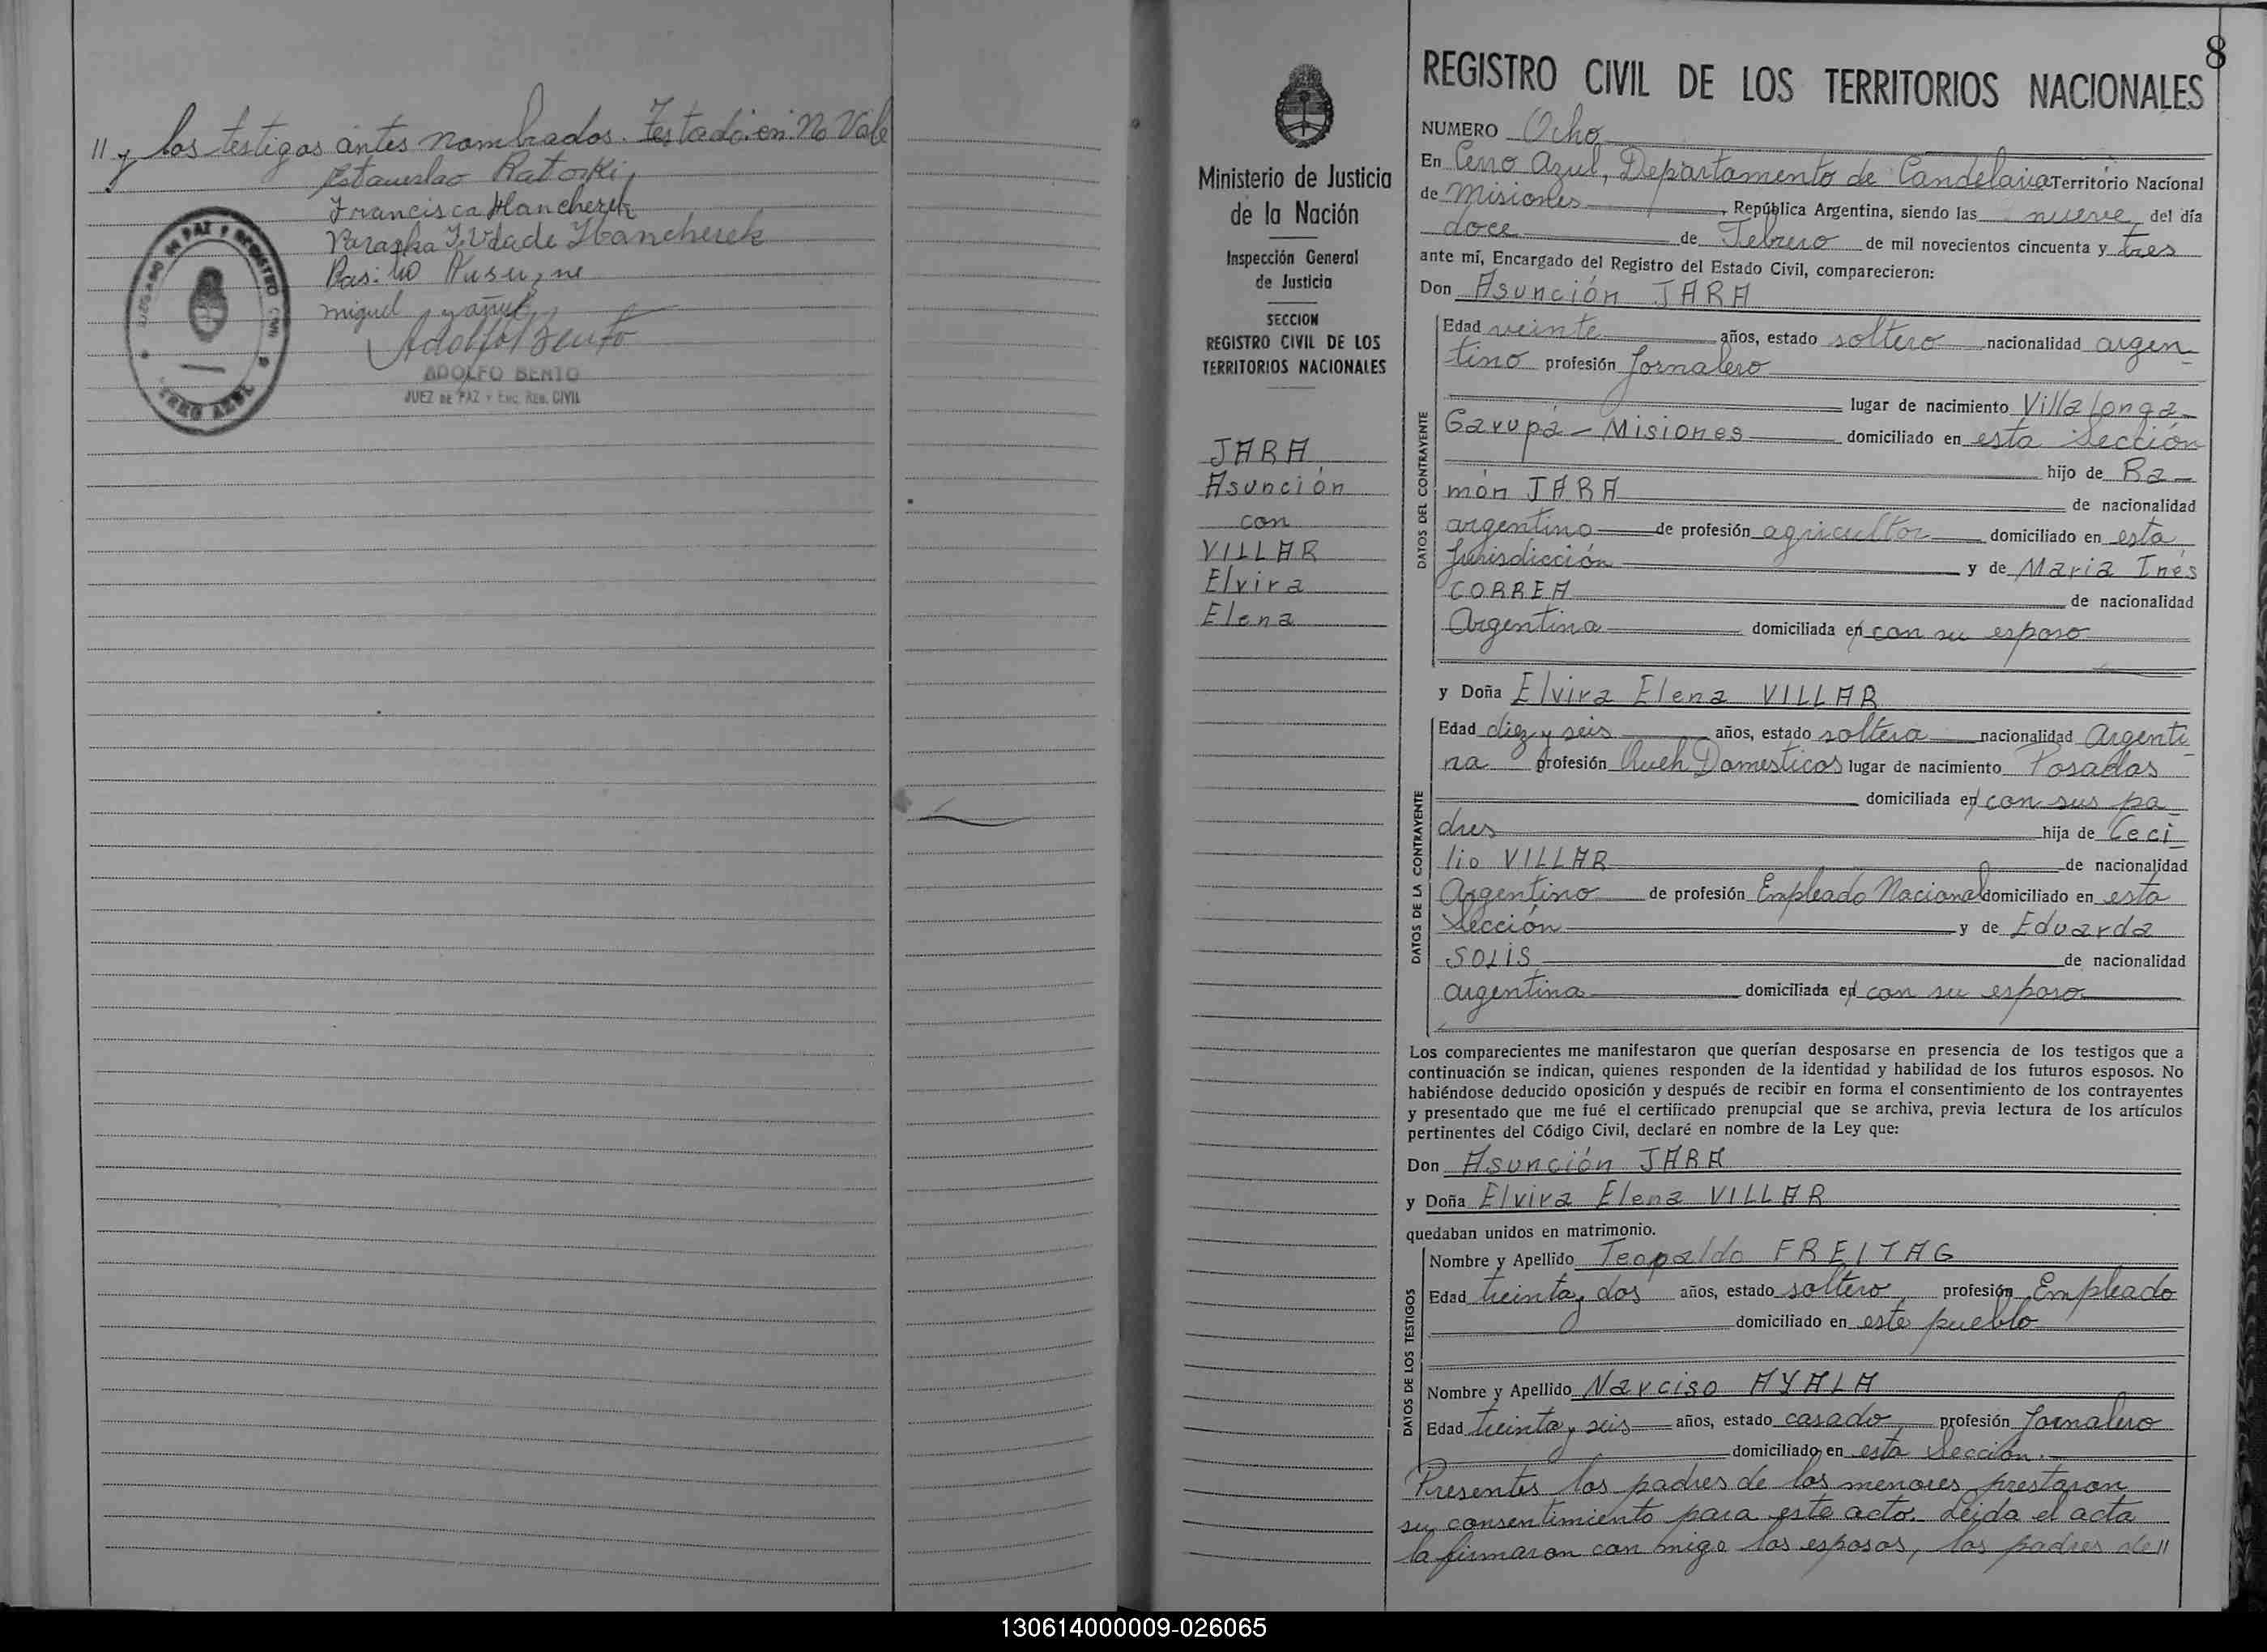 " y los testigos antes nombrados. Testado: en: No Vale
Estanislao Ratoski
Francisca Hancherek
Paraska I. Vda de Hancherek
Basilio
miguel
Adolfo Bento
ADOLFO BENTO
JUEZ DE PAZ Y ENC. REG. CIVIL
JUZGADO DE PAZ Y REGISTRO CIVIL
CERRO AZUL
8
Ministerio de Justicia
de la Nación
Inspección General
de Justicia
SECCION
REGISTRO CIVIL DE LOS
TERRITORIOS NACIONALES
JARA
Asunción
con
VILLAR
Elvira
Elena
REGISTRO CIVIL DE LOS TERRITORIOS NACIONALES
NUMERO Ocho
En Cerro Azul, Departamento de Candelaria Territorio Nacional
de Misiones, República Argentina, siendo las nueve del día
doce de Febrero de mil novecientos cincuenta y tres
ante mí, Encargado del Registro del Estado Civil, comparecieron:
Don Asunción JARA
DATOS DEL CONTRAYENTE
Edad veinte años, estado soltero nacionalidad argen
tino profesión Jornalero
lugar de nacimiento Villalonga
Garupá - Misiones domiciliado en esta Sección
hijo de Ra-
món JARA de nacionalidad
argentino de profesión agricultor domiciliado en esta
Jurisdicción y de María Inés
CORREA de nacionalidad
Argentina domiciliada en con su esposo
y Doña Elvira Elena VILLAR
DATOS DE LA CONTRAYENTE
Edad diez y seis años, estado soltera nacionalidad Argenti-
na profesión Queh. Domesticos lugar de nacimiento Posadas
domiciliada en con sus pa-
dres hija de Ceci-
lio VILLAR de nacionalidad
Argentino de profesión Empleado Nacional domiciliado en esta
Sección y de Eduarda
SOLIS de nacionalidad
argentina domiciliada en con su esposo
Los comparecientes me manifestaron que querían desposarse en presencia de los testigos que a
continuación se indican, quienes responden de la identidad y habilidad de los futuros esposos. No
habiéndose deducido oposición y después de recibir en forma el consentimiento de los contrayentes
y presentado que me fué el certificado prenupcial que se archiva, previa lectura de los artículos
pertinentes del Código Civil, declaré en nombre de la Ley que:
Don Asunción JARA
y Doña Elvira Elena VILLAR
quedaban unidos en matrimonio.
DATOS DE LOS TESTIGOS
Nombre y Apellido Teopaldo FREITAG
Edad treinta y dos años, estado soltero profesión Empleado
domiciliado en este pueblo
Nombre y Apellido Narciso AYALA
Edad treinta y seis años, estado casado profesión Jornalero
domiciliado en esta Sección.
Presentes los padres de los menores prestaron
su consentimiento para este acto. Leida el acta
la firmaron con migo los esposos, los padres de "
130614000009-026065